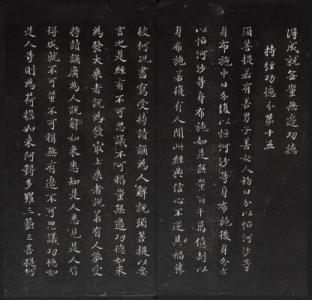 得成就無量無邊功德
持經功德分第十五
須菩提若有善男子善女人初日分以恒河沙等
身布施中日分復以恒河沙等身布施後日分亦
以恒河沙等身布施如是無量百千萬億劫以
身布施若復有人聞此經典信心不逆其福勝
彼何況書寫受持讀誦為人解說須菩提以要
言之是經有不可思議不可稱量無邊功德如來
為發大乘者說為發最上乘者說若有人能受
持讀誦廣為人說如來悉知是人悉見是人皆
得成就不可量不可稱無有邊不可思議功德如
是人等則為荷擔如來阿耨多羅三藐三菩提何